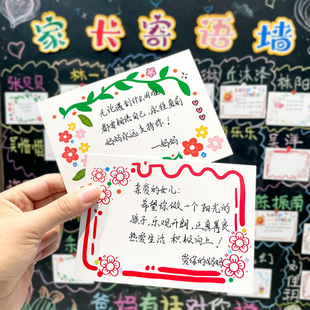 家长寄语墙
张贝贝
林一
丘沐泽
林阳
无论遇到什么困难
都要相信自己，永往直前
妈妈永远支持你！
——妈妈
乐乐
陈振南
亲爱的女儿：
希望你做一个阳光的
孩子，乐观开朗，正直善良
热爱生活 积极向上！
爱你的妈妈
爸妈有话对你说